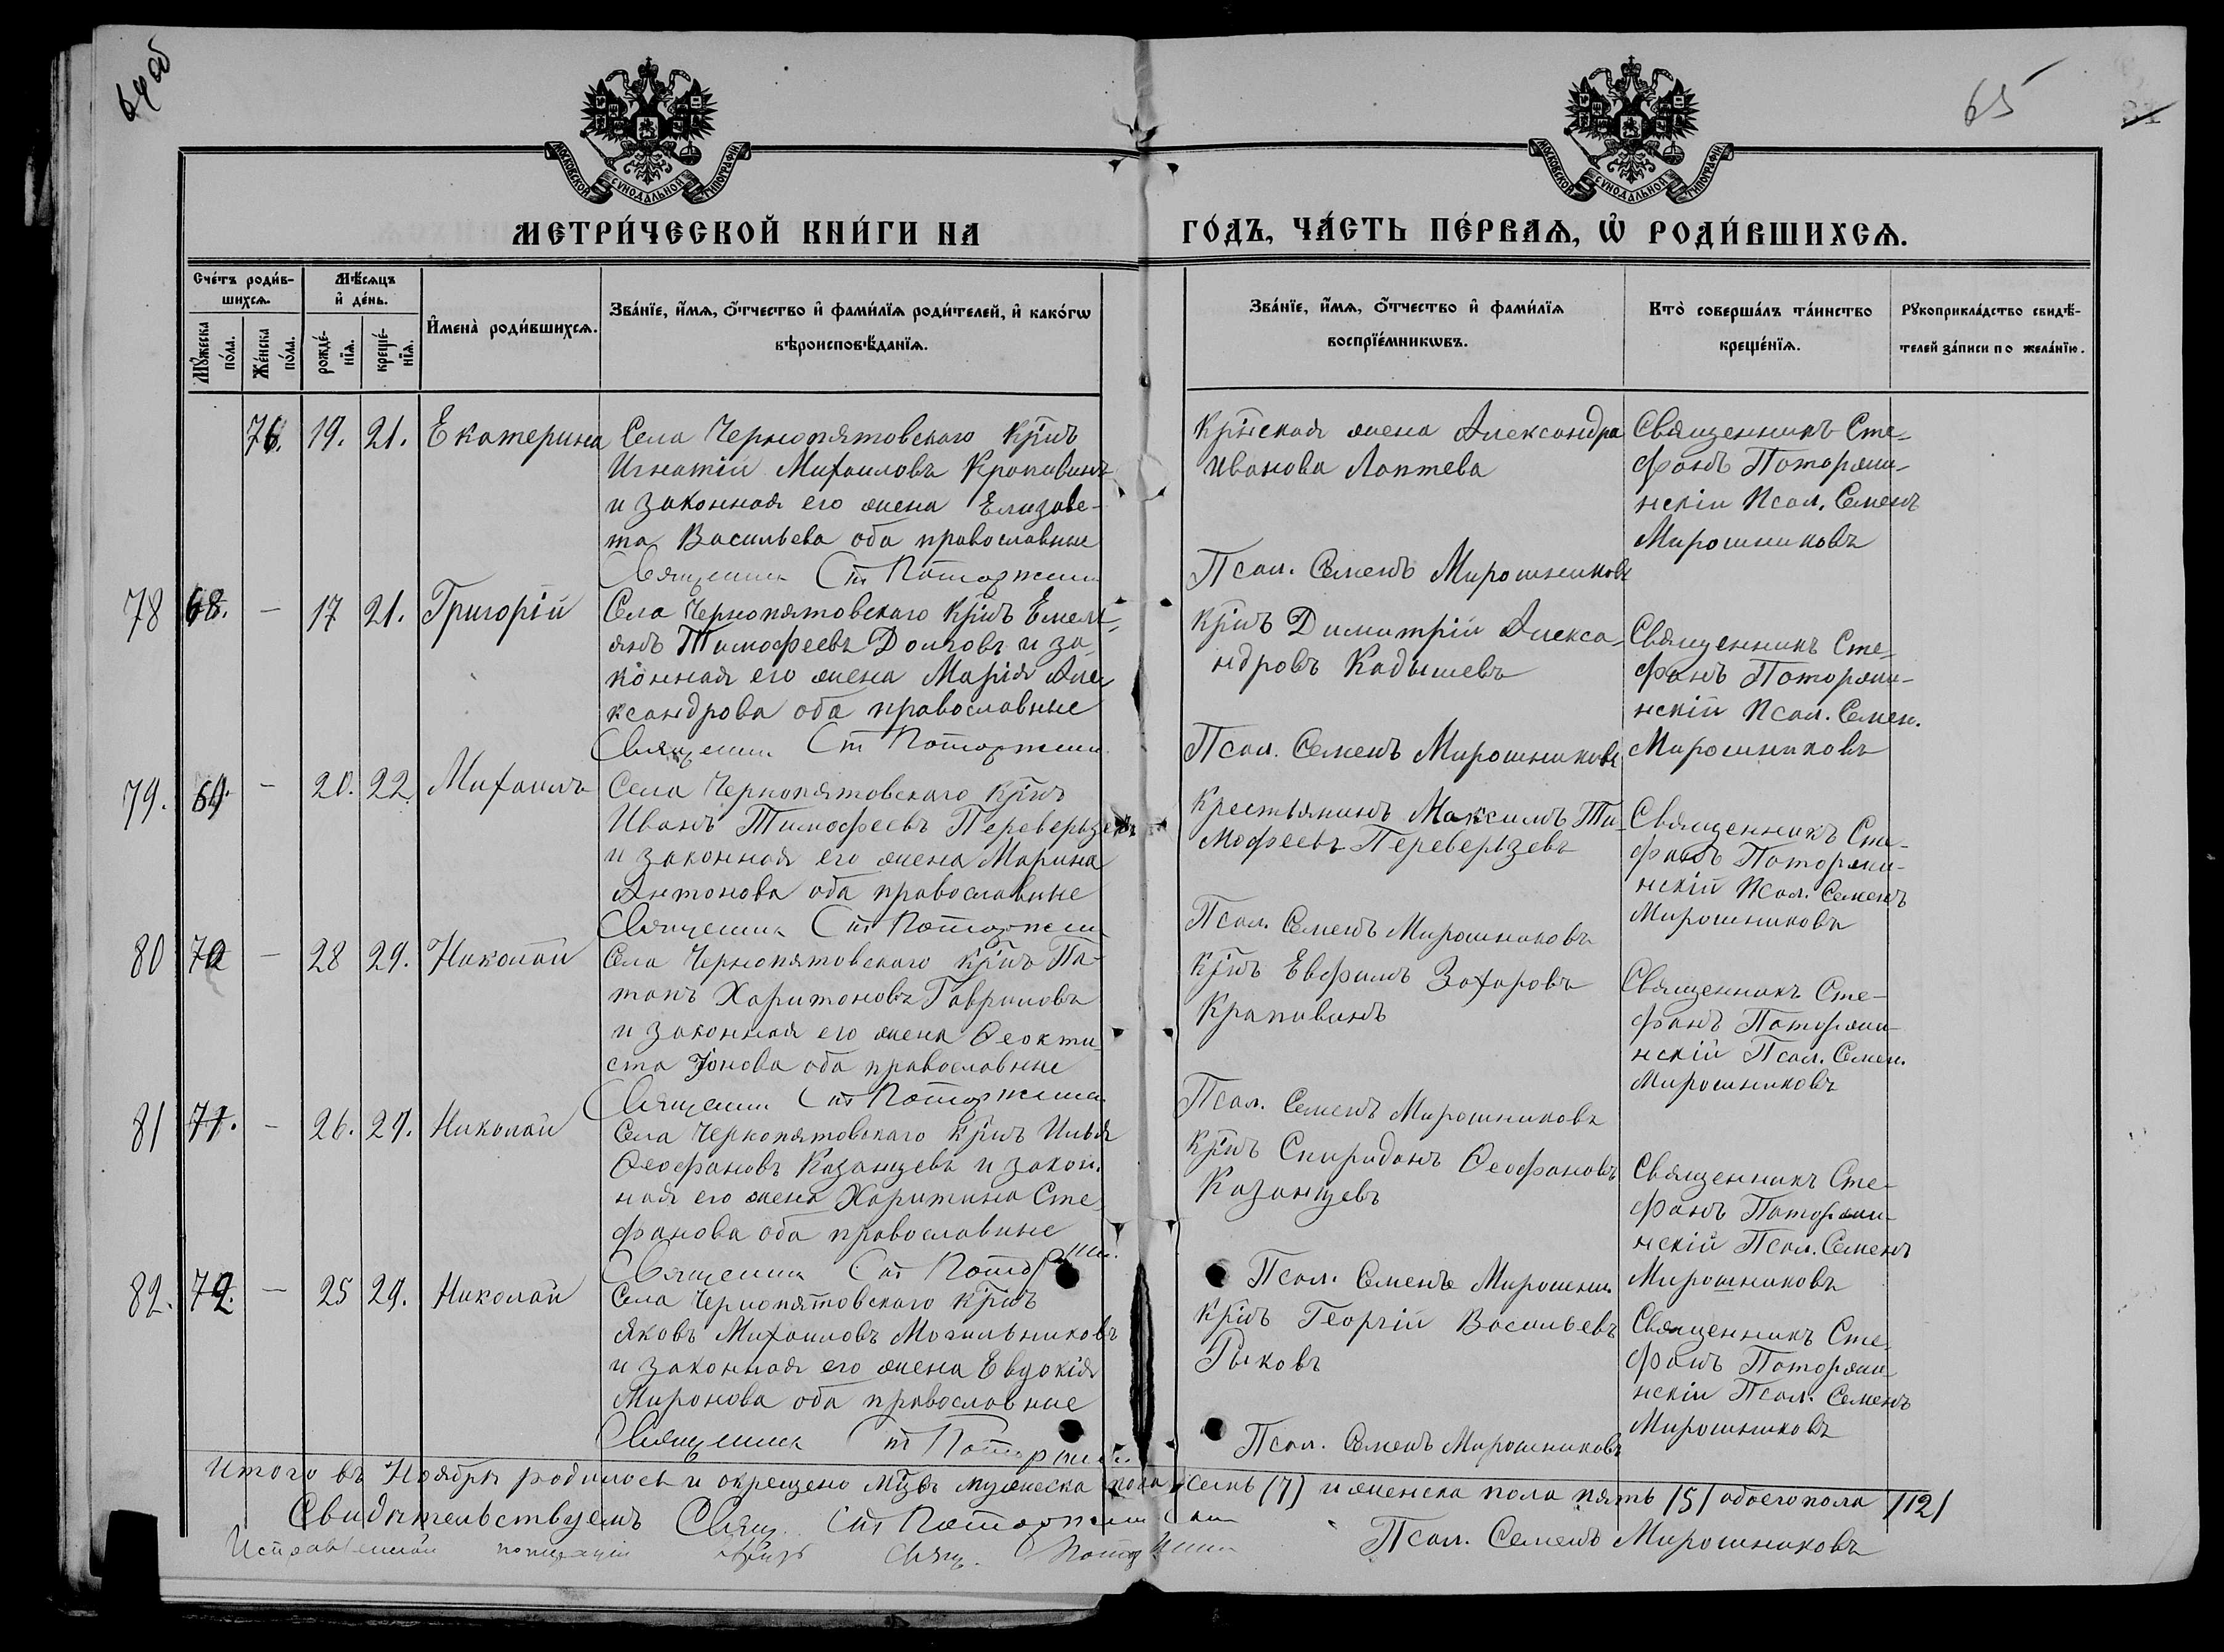 64 об
65
МОСКОВСКОЙ СѴНОДАЛЬНОЙ ТИПОГРАФІИ
МОСКОВСКОЙ СѴНОДАЛЬНОЙ ТИПОГРАФІИ
МЕТРИ́ЧЕСКОЙ КНИ́ГИ НА
ГО́ДЪ, ЧА́СТЬ ПЕ́РВАѦ, Ѡ҆ РОДИ́ВШИХСѦ.
Сче́тъ роди́в-
шихсѧ.
Мꙋ́жеска по́ла.
Же́нска по́ла.
Мѣ́сѧцъ
и҆ де́нь.
рожде́-
нїѧ.
креще́-
нїѧ.
И҆мена̀ роди́вшихсѧ.
Зва́нїе, и҆́мѧ, ѻ҆́тчество и҆ фами́лїѧ роди́телей, и҆ како́гѡ
вѣроисповѣ́данїѧ.
Зва́нїе, и҆́мѧ, ѻ҆́тчество и҆ фами́лїѧ
воспрїе́мникѡвъ.
Кто̀ соверша́лъ та́инство
креще́нїѧ.
Рꙋкоприкла́дство свидѣ́-
телей за́писи по жела́нїю.
76. 19. 21. Екатерина
Села Чернопятовскаго кр҃инъ
Игнатій Михаиловъ Крапивинъ
и законная его жена Елизаве-
та Васильева оба православные
Священник Ст Поторжин
кр҃нская жена Александра
Иванова Лаптева
Псал. Семенъ Мирошниковъ
Священникъ Сте-
фанъ Поторжи-
нскій Псал. Семенъ
Мирошниковъ
78 68. — 17 21. Григорій
Села Чернопятовскаго кр҃инъ Емель-
янъ Тимофеевъ Долговъ и за-
конная его жена Марія Але-
ксандрова оба православные
Священник Ст Поторжин
кр҃инъ Димитрій Алекса-
ндровъ Кадышевъ
Псал. Семенъ Мирошниковъ
Священникъ Сте-
фанъ Поторжи-
нскій Псал. Семен.
Мирошниковъ
79. 69. — 20. 22. Михаилъ
Села Чернопятовскаго кр҃инъ
Иванъ Тимофеевъ Переверзевъ
и законная его жена Марина
Антонова оба православные
Священник Ст Поторжин
крестьянинъ Максимъ Ти-
мофеевъ Переверзевъ
Псал. Семенъ Мирошниковъ
Священникъ Сте-
фанъ Поторжи-
нскій Псал. Семенъ
Мирошниковъ
80 70 — 28 29. Николай
Села Чернопятовскаго кр҃инъ По-
тапъ Харитоновъ Гавриловъ
и законная его жена Ѳеокти-
ста Іонова оба православные
Священник Ст Поторжин
кр҃инъ Евфимъ Захаровъ
Крапивинъ
Псал. Семенъ Мирошниковъ
Священникъ Сте-
фанъ Поторжи-
нскій Псал. Семен.
Мирошниковъ
81 71. — 26. 29. Николай
Села Чернопятовскаго кр҃инъ Илья
Ѳеофановъ Казанцевъ и закон-
ная его жена Харитина Сте-
фанова оба православные
Священник Ст Поторжин.
кр҃инъ Спиридонъ Ѳеофановъ
Казанцевъ
Псал. Семенъ Мирошник.
Священникъ Сте-
фанъ Поторжи-
нскій Псал. Семенъ
Мирошниковъ
82. 72. — 25 29. Николай
Села Чернопятовскаго кр҃инъ
Яковъ Михаиловъ Могильниковъ
и законная его жена Евдокія
Миронова оба православные
Священник Ст Поторжин.
кр҃инъ Георгій Васильевъ
Рыковъ
Псал. Семенъ Мирошниковъ
Священникъ Сте-
фанъ Поторжи-
нскій Псал. Семенъ
Мирошниковъ
Итого въ Ноябрѣ родилось и окрещено мл҃цевъ мужеска пола семь (7) и женска пола пять (5) обоего пола (12)
Свидѣтельствуемъ Свящ. Ст Поторжинскій
Псал. Семенъ Мирошниковъ